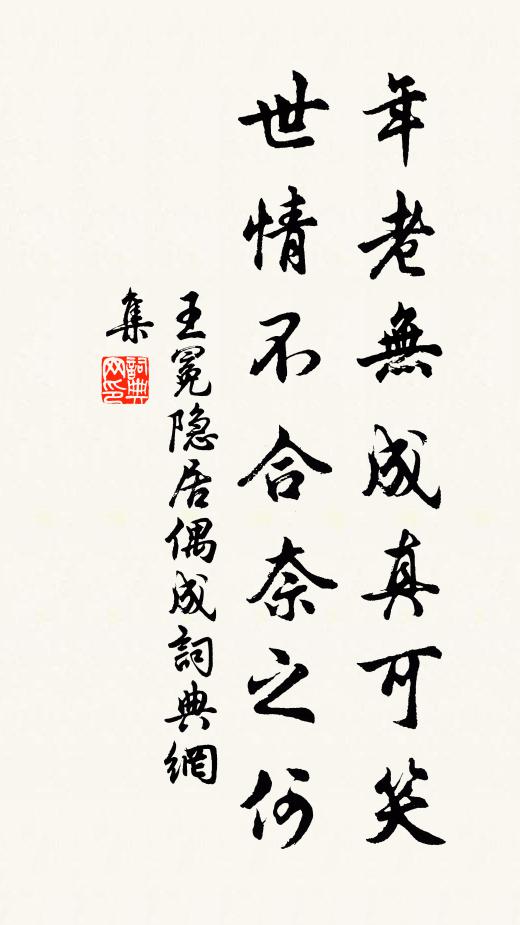 年老無成真可笑
世情不合奈之何
王冕隐居偶成詞典網
集
詞典
网印